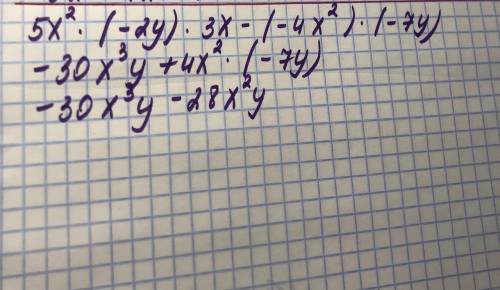 5x² · (-2y) · 3x - (-4x²) · (-7y)
-30x³y + 4x² · (-7y)
-30x³y - 28x²y